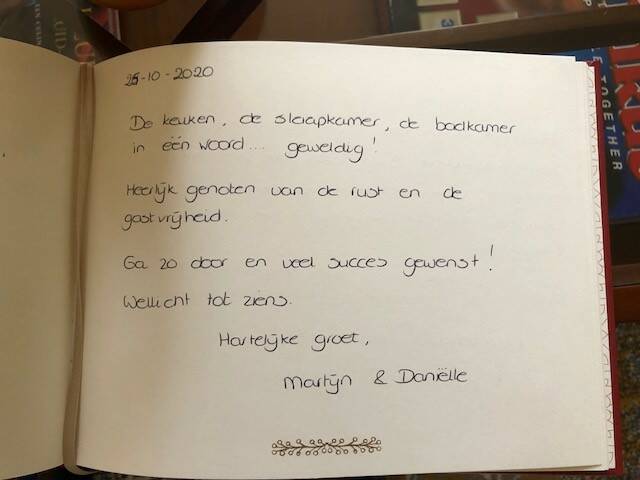 25-10-2020
De keuken, de slaapkamer, de badkamer
in één woord.... geweldig!
Heerlijk genoten van de rust en de
gastvrijheid.
Ga zo door en veel succes gewenst!
Wellicht tot ziens.
Hartelijke groet,
Martijn & Daniëlle
E TOGETHER